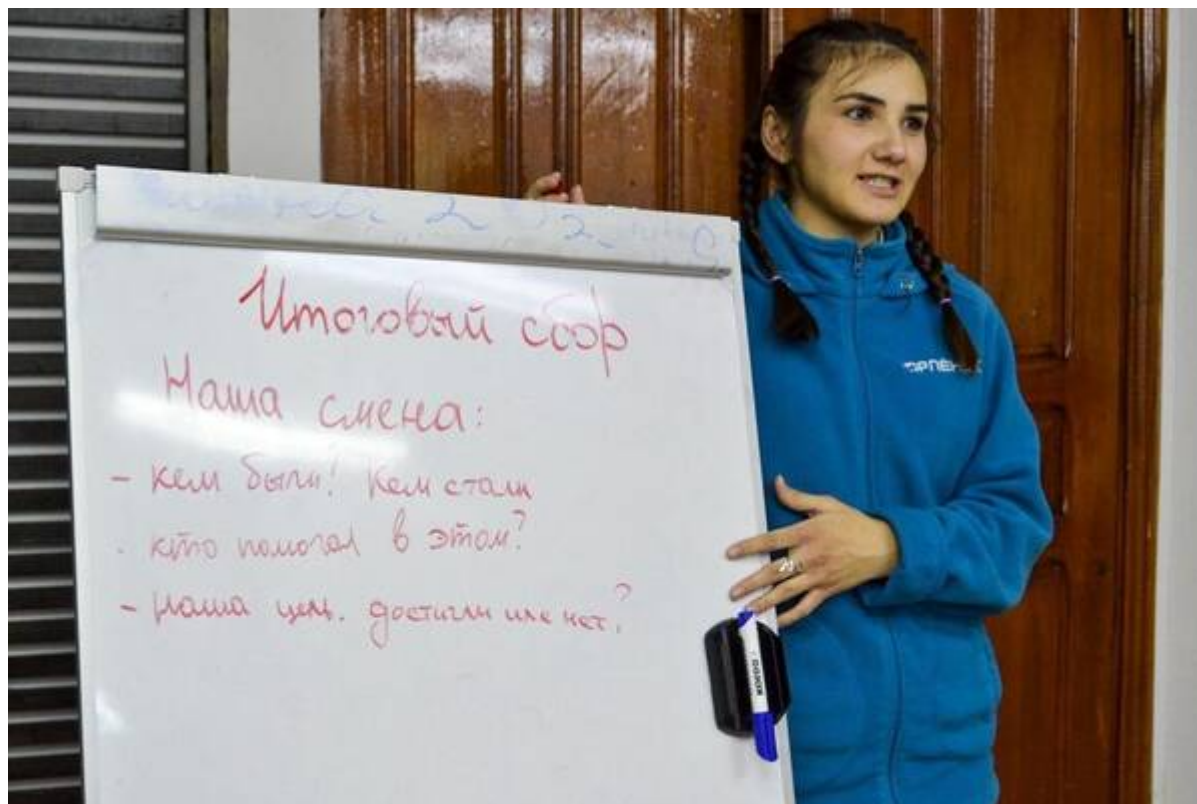 Итоговый сбор
Наша смена:
- кем были! Кем стали
. кто помогал в этом?
- Наша цель. достигли или нет?